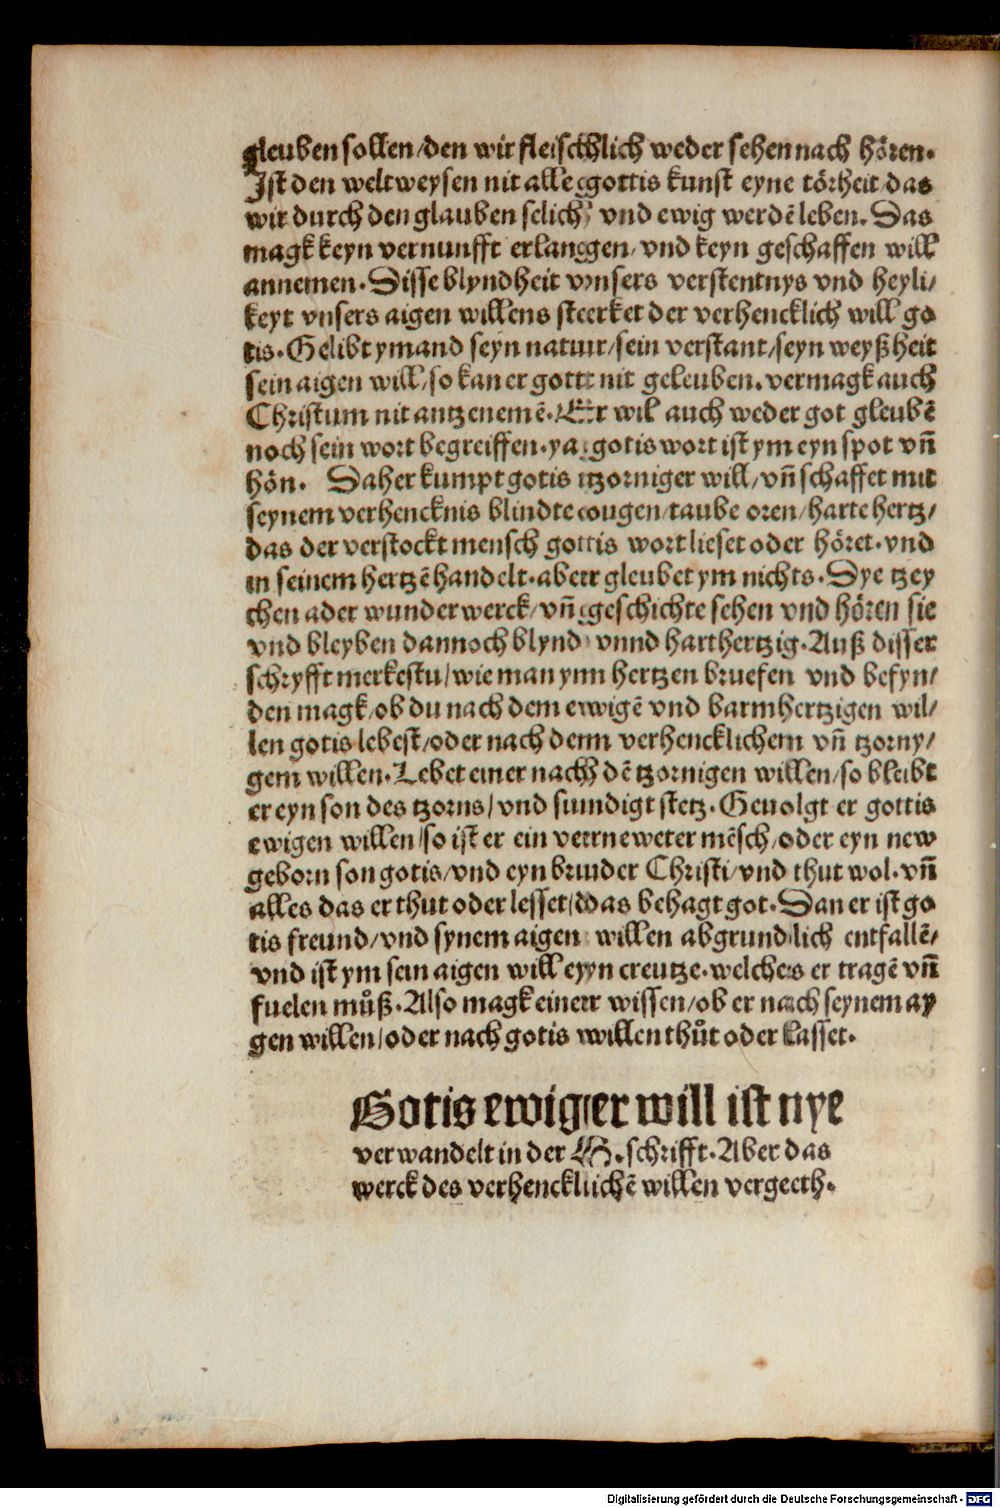 gleuben sollen/den wir fleischlich weder sehen nach hören.
Ist den weltweysen nit alle gottis kunst eyne törheit/das
wir durch den glauben selich/ vnd ewig werdē leben. Das
magk keyn vernunfft erlanngen/vnd keyn geschaffen will
annemen. Disse blyndheit vnsers verstentnys vnd heyli/
keyt vnsers aigen willens steerket der verhencklich will go
tis. Gelibt ymand seyn natuur/sein verstant/seyn weyßheit
sein aigen will/so kan er gott nit geleuben. vermagk auch
Christum nit antzenemē. Er wil auch weder got gleubē
noch sein wort begreiffen. ya gotis wort ist ym eyn spot vn̄
hön. Daher kumpt gotis tzorniger will/vn̄ schaffet mit
seynem verhencknis blindte ougen/taube oren/harte hertz/
das der verstockt mensch gottis wort lieset oder höret. vnd
in seinem hertzē handelt. aberr gleubet ym nichts. Dye tzey
chen ader wunderwerck/vn̄ geschichte sehen vnd hören sie
vnd bleyben dannoch blynd/ vnnd harthertzig. Auß disser
schryfft merkestu/wie man ynn hertzen bruefen vnd befyn/
den magk/ob du nach dem ewigē vnd barmhertzigen wil/
len gotis lebest/oder nach denn verhencklichem vn̄ tzorny/
gem willen. Lebet einer nach dē tzornigen willen/so bleibt
er eyn son des tzorns/vnd suundigt stetz. Geuolgt er gottis
ewigen willen/so ist er ein verrneweter mēsch/oder eyn new
geborn son gotis/vnd eyn bruuder Christi/vnd thut wol. vn̄
alles das er thut oder lesset/das behagt got. Dan er ist go
tis freund/vnd synem aigen willen abgrundlich entfallē/
vnd ist ym sein aigen will eyyn creutze. welches er tragē vn̄
fuelen můß. Also magk einerr wissen/ob er nach seynem ay
gen willen/oder nach gotis willen thůt oder lasset.
Gotis ewiger will ist nye
verwandelt in der H. schrifft. Aber das
werck des verhenckliichē willen vergeeth.
Digitalisierung gefördert durch die Deutsche Forschungsgemeinschaft - DFG